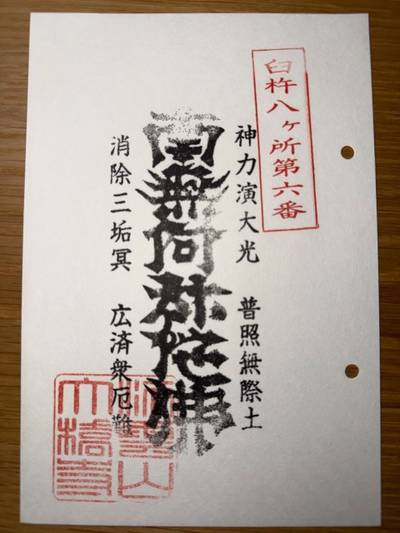 臼杵八ヶ所第六番
神力演大光　普照無際土
南無阿弥陀佛
消除三垢冥　広済衆厄難
大橋寺